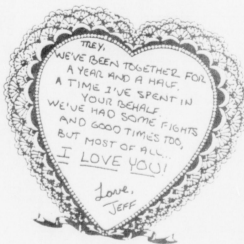 TREY,
WE'VE BEEN TOGETHER FOR
A YEAR AND A HALF.
A TIME I'VE SPENT IN
YOUR BEHALF.
WE'VE HAD SOME FIGHTS
AND GOOD TIMES TOO,
BUT MOST OF ALL...
I LOVE YOU!
Love,
JEFF